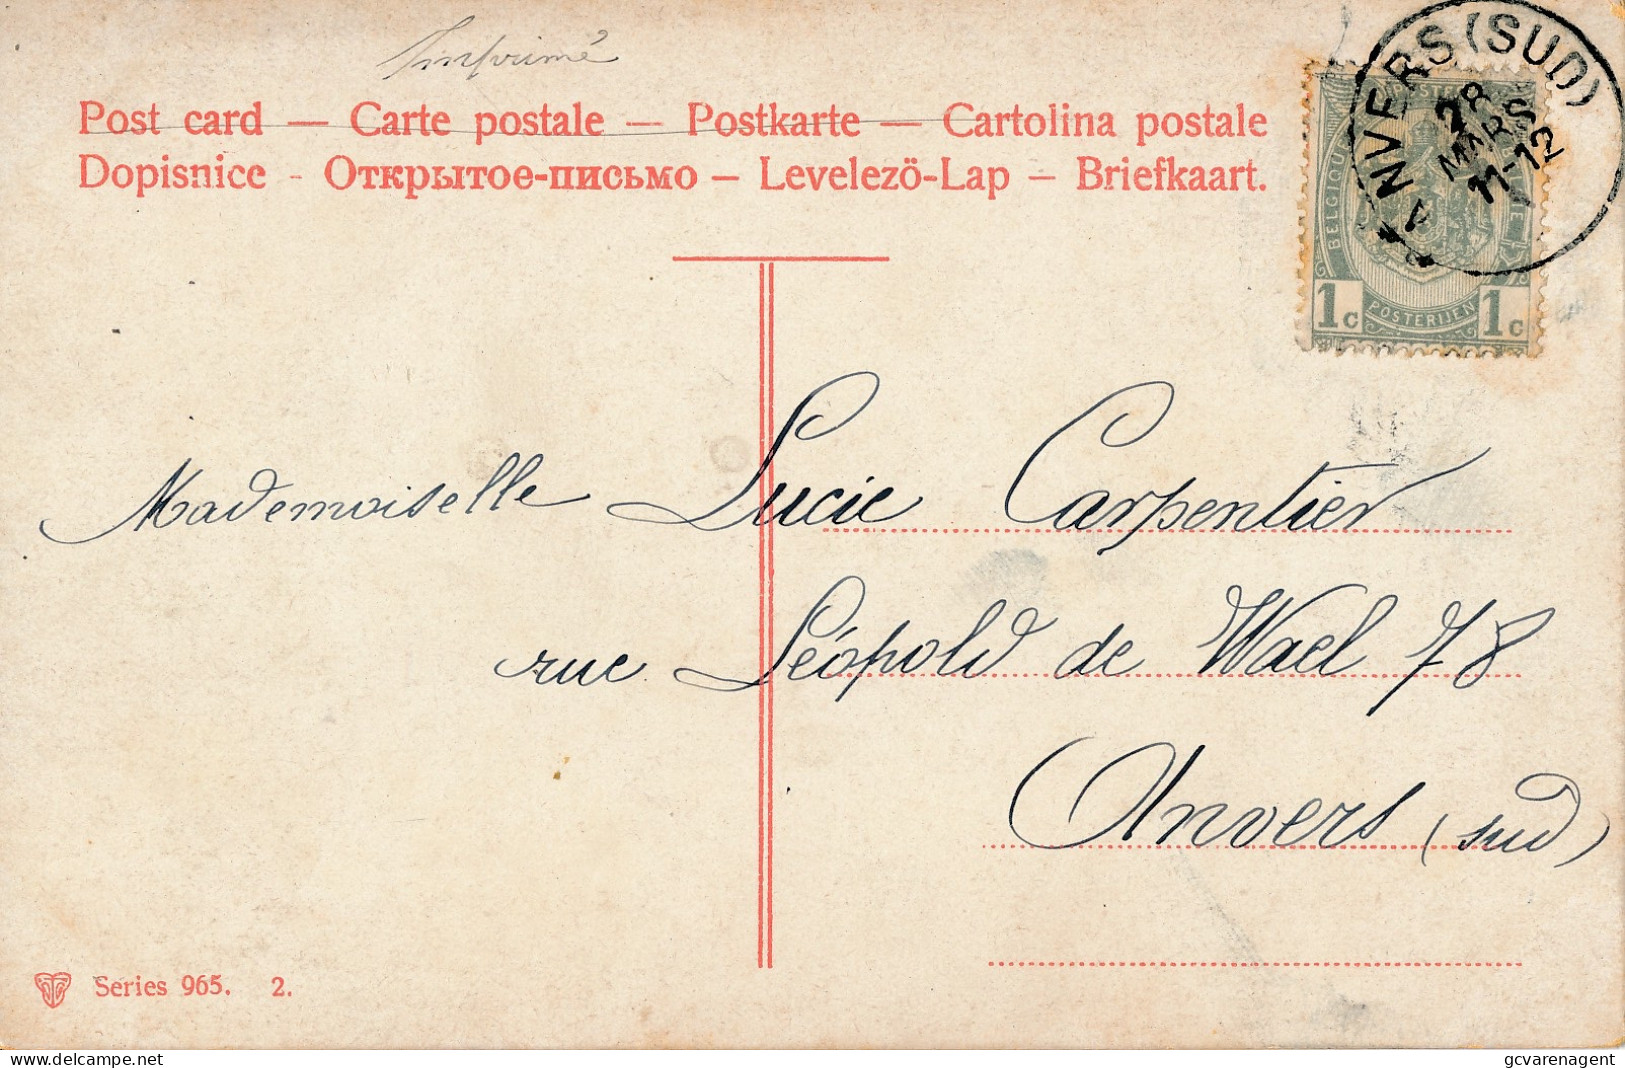 Imprimé
Post card — Carte postale — Postkarte — Cartolina postale
Dopisnice - Открытое-письмо — Levelezö-Lap — Briefkaart.
ANVERS (SUD)
28
MARS
11-12
BELGIQUE
1c POSTERIJEN 1c
Mademoiselle Lucie Carpentier
rue Léopold de Wael 78
Anvers (sud)
Series 965. 2.
delcampe.net
gcvarenagent